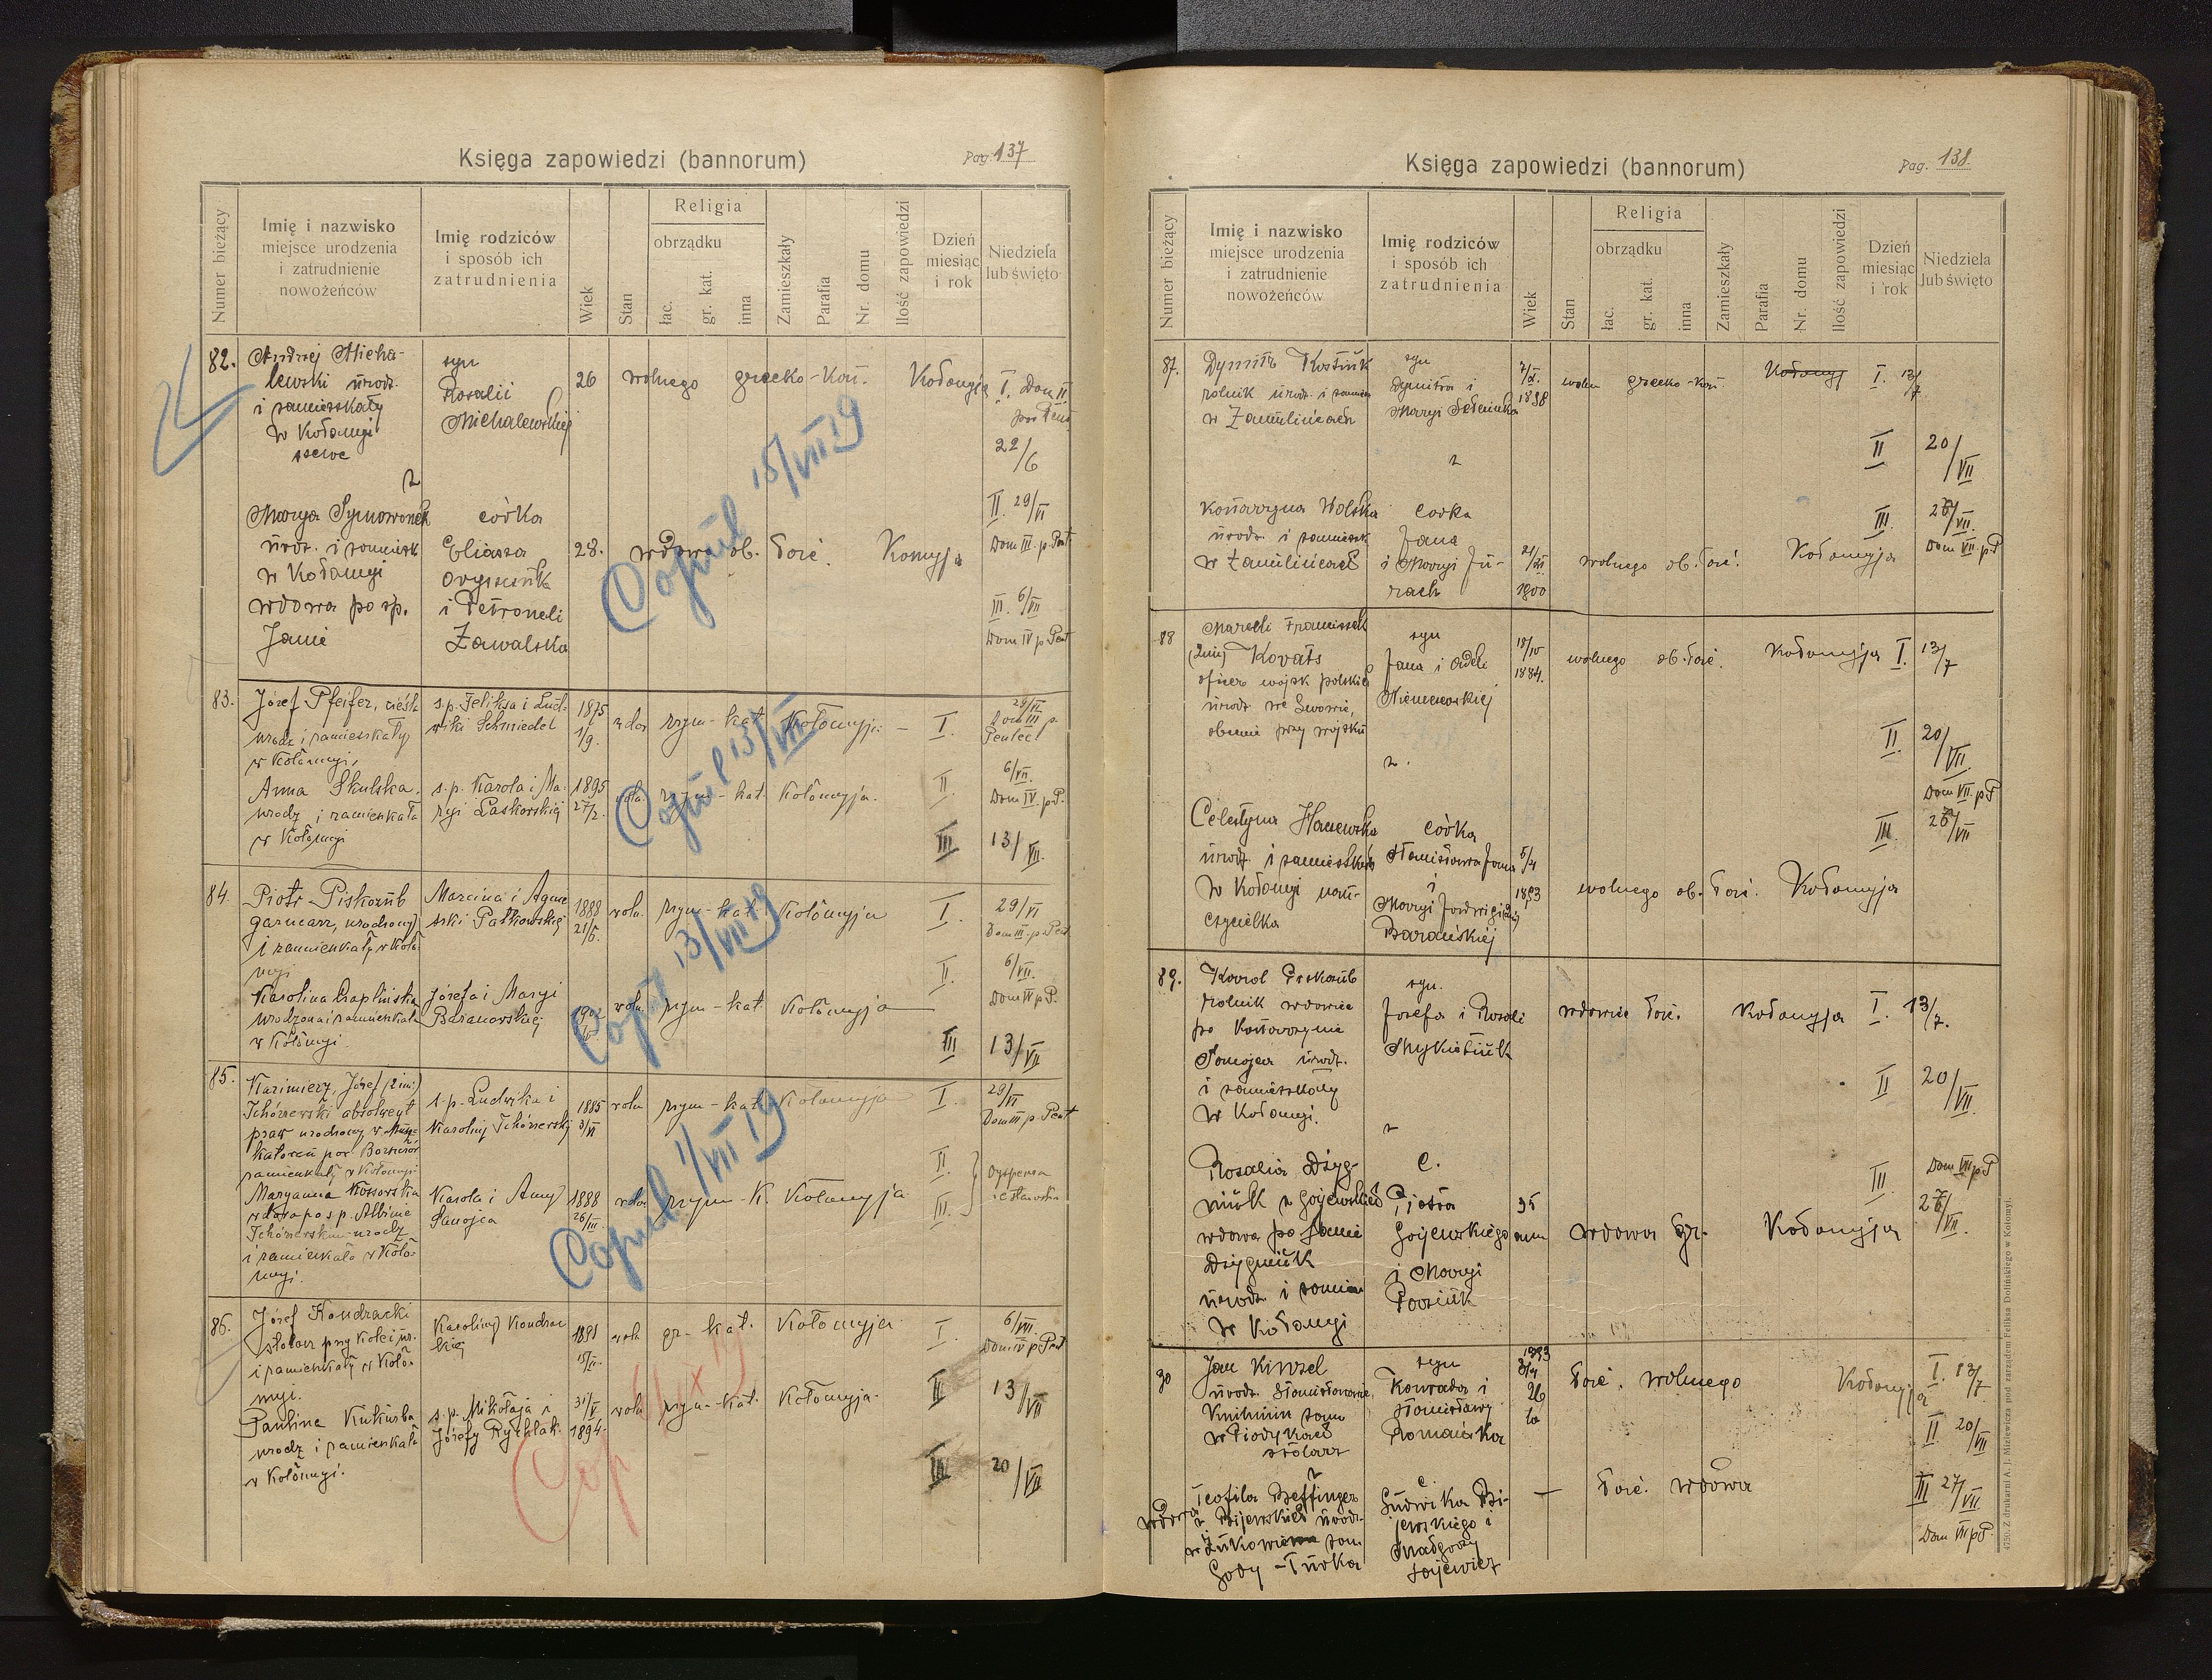 Księga zapowiedzi (bannorum)
Pag. 137
Numer bieżący
Imię i nazwisko
miejsce urodzenia
i zatrudnienie
nowożeńców
Imię rodziców
i sposób ich
zatrudnienia
Wiek
Stan
Religia
obrządku
łac.
gr. kat.
inna
Zamieszkały
Parafia
Nr. domu
Ilość zapowiedzi
Dzień
miesiąc
i rok
Niedziela
lub święto
82.
Andrzej Micha-
lewski urodz.
i zamieszkały
w Kołomyi
szewc
syn
Rozalii
Michalewskiej
26
wolnego
grecko-kat.
Kołomyja
I. Dom II
post Pent
22/6
z
Marya Symowonek
urodz. i zamieszk
w Kołomyi
wdowa po śp.
Janie
córka
Eliasza
i Petroneli
Zawalska
28.
wdowa ob. łać.
II. 29/VI
Dom III. p. Pent
III. 6/VII
Dom IV p Pent
Copul 15/VII 19
83.
Józef Pfeifer, cieśla
urodz i zamieszkały
w Kołomyi,
s.p. Feliksa i Lud-
wiki Schmiedel
1875
1/9.
wdow
rzym-kat
Kołomyja
I.
29/VI
Dom III p.
Pentec
Anna Skulska.
urodz i zamieszkała
w Kołomyi
s.p. Karola i Ma-
ryi Laskowskiej
1895
27/2.
woln.
rzym-kat.
Kołomyja.
II.
6/VII.
Dom IV. p P.
III
13/VII.
Copul 13/VII
84.
Piotr Piskozub
garncarz, urodzony
i zamieszkały w Koło
myi
Marcina i Agnie
szki Pałkowskiej
1888
21/5.
woln.
rzym-kat.
Kołomyja
I.
29/VI
Dom III. p. Pent
Karolina Czaplińska
urodzona i zamieszkała
w Kołomyi.
Józefa i Maryi
Baranowskiej
woln.
rzym-kat
Kołomyja
II.
6/VII.
Dom IV p P.
III
13/VII
Copul 13/VII 19
85.
Kazimierz, Józef (2 im.)
Tchórzewski absolwent
praw urodzony w
zamieszkały w Kołomyi
s.p. Ludwika i
Karoliny Tchórzewskiej
1885
3/VI
woln
rzym-kat.
Kołomyja
I.
29/VI
Dom III p Pent
Maryanna Kossowska
wdowa po s p. Albinie
Tchórzewskim urodz
i zamieszkała w Koło-
myi.
Karola i Anny
Sanojca
1888
26/III.
wdow
rzym-K.
Kołomyja
II.
III.
Dyspensa
Copul 1/VII 19
86.
Józef Kondracki
stolarz przy kolei ur.
i zamieszkały w Koło-
myi.
Karoliny Kondrac
kiej
1891
woln
gr-kat.
Kołomyja
I.
6/VII
Dom IV p Pent
Paulina Kukurba
urodz i zamieszkała
w Kołomyi.
s.p. Mikołaja i
Józefy Rychlak.
31/V
1894.
woln
rzym-kat.
Kołomyja
II
13/VII
III
20/VII
Cop
Księga zapowiedzi (bannorum)
Pag. 138
Numer bieżący
Imię i nazwisko
miejsce urodzenia
i zatrudnienie
nowożeńców
Imię rodziców
i sposób ich
zatrudnienia
Wiek
Stan
Religia
obrządku
łac.
gr. kat.
inna
Zamieszkały
Parafia
Nr. domu
Ilość zapowiedzi
Dzień
miesiąc
i rok
Niedziela
lub święto
87.
Dymitr Kostiuk
rolnik urodz. i zamiesz
w Zamulińcach
syn
Dymitra i
Maryi
1898
woln
grecko-kat.
Kołomyj
I. 13/7
z
II
20/VII
Katarzyna Wolska
urodz i zamieszk
w Zamulińcach
córka
Jana
i Maryi Ju-
rach
21/XI
1900
wolnego ob. łać.
Kołomyja
III.
27/VII.
Dom VII. p P
88
Marceli Franciszek
(2 im) Kovats
oficer wojsk polskich
urodz we Lwowie,
obecnie przy wojsku
syn
Jana i Adeli
Niemczewskiej
18/IV
1884.
wolnego
ob. łać.
Kołomyja
I.
13/7
z.
II.
20/VII.
Dom VII. p P
Celestyna
urodz. i zamieszkała
w Kołomyi nau-
czycielka
córka
Stanisława Jana
i
Maryi Jadwigi (2 im)
Barańskiej
5/4
1893
wolnego ob. łać.
Kołomyja
III
27/VII
89.
Karol Piskozub
rolnik wdowiec
po Katarzynie
Sanojca urodz.
i zamieszkały
w Kołomyi.
syn.
Józefa i Rozali
Mykietiuk
wdowiec łać.
Kołomyja
I.
13/7.
z
II
20/VII.
Rozalia Dżyg-
niuk z Gojewskich
wdowa po Janie
Dżygniuk
urodz i zamiesz
w Kołomyi
C.
Piotra
Gojewskiego
i Maryi
35
wdowa Gr.
Kołomyja
III.
Dom VII p P
27/VII.
90
Jan Kinzel
urodz. Stanisławowie
Knihinin zam
w Piadykach
stolarz
syn
Konrada i
Stanisławy
Romańska
1893
3/4
26
la
łać. wolnego
Kołomyja
I. 13/7
II 20/VII
z
Teofila Beffinger
wdowa z Bijewskich urodz.
w Żukowie zam
Gody-Turka
c.
Ludwika Bi-
jewskiego i
Małgorzy
—
łać. wdowa
III 27/VII
Dom VII p P.
4750. Z drukarni A. J. Miziewicza pod zarządem Feliksa Dolińskiego w Kołomyi.